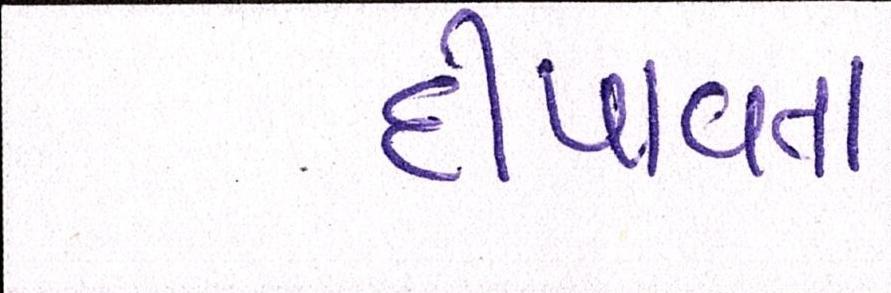 દીપાવતા